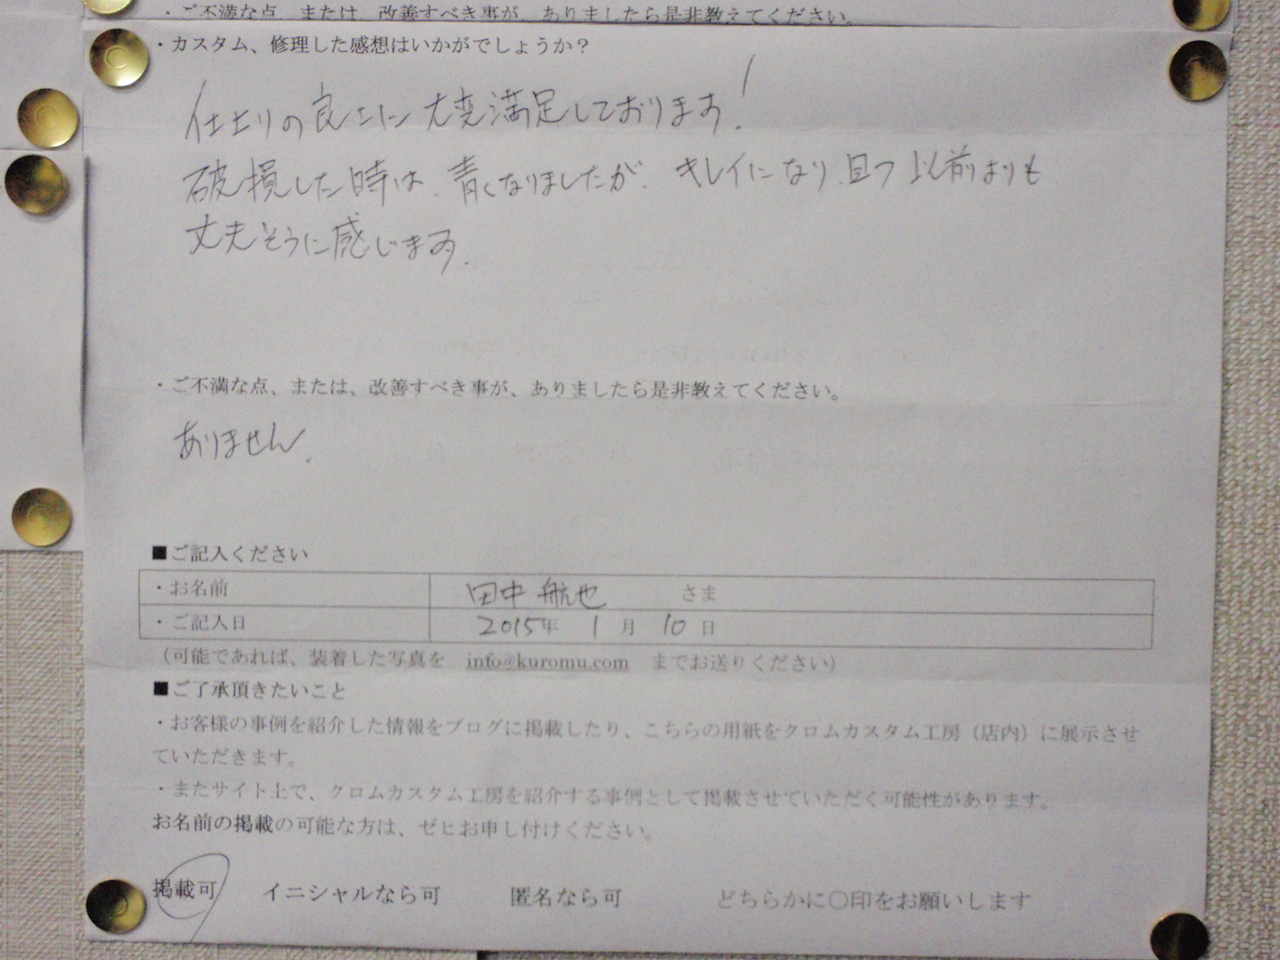 ・ご不満な点、または、改善すべき事が、ありましたら是非教えてください。
・カスタム、修理した感想はいかがでしょうか？
仕上りの良さに大変満足しております！
破損した時は、青くなりましたが、キレイになり、且つ以前よりも
丈夫そうに感じます。
・ご不満な点、または、改善すべき事が、ありましたら是非教えてください。
ありません。
■ご記入ください
・お名前 田中 航也 さま
・ご記入日 2015年 1月 10日
（可能であれば、装着した写真を info@kuromu.com までお送りください）
■ご了承頂きたいこと
・お客様の事例を紹介した情報をブログに掲載したり、こちらの用紙をクロムカスタム工房（店内）に展示させ
ていただきます。
・またサイト上で、クロムカスタム工房を紹介する事例として掲載させていただく可能性があります。
お名前の掲載の可能な方は、ゼヒお申し付けください。
掲載可 イニシャルなら可 匿名なら可 どちらかに〇印をお願いします